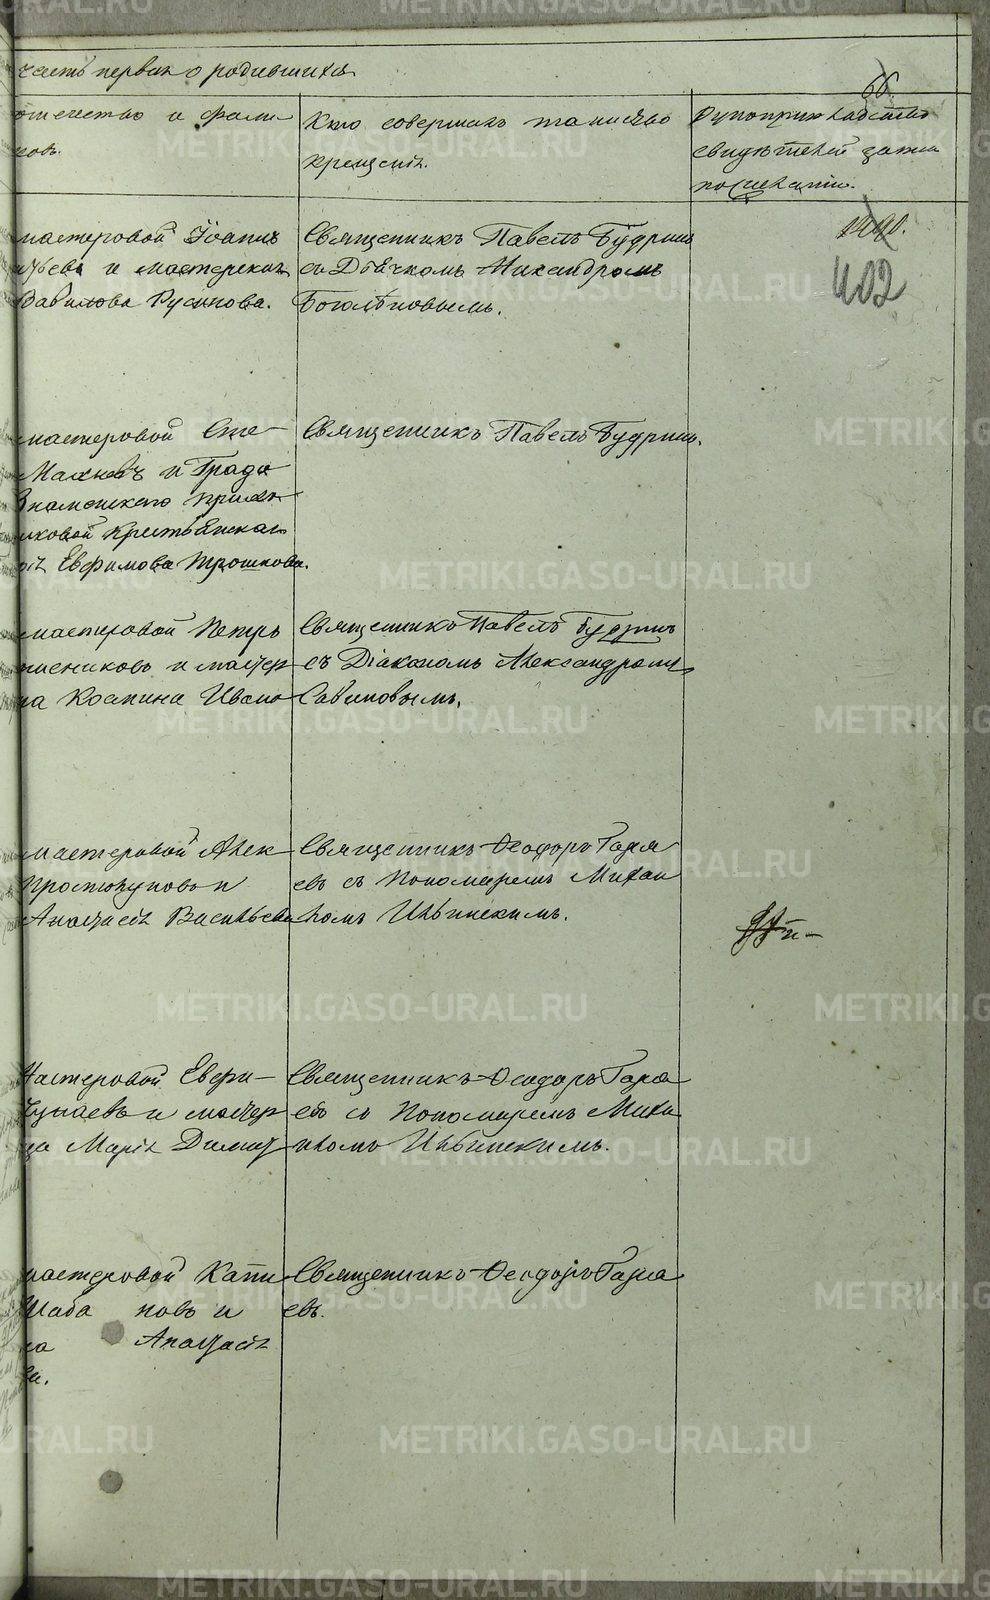 часть первая о родившихся
66.
отечество и фами
Кто совершалъ таинство
крещенія.
Рукоприкладство
свидѣтелей записи
по желанію.
мастеровой Іоаннъ
и мастерская
Вавилова Русинова.
Священникъ Павелъ Будринъ
съ Дьячкомъ Никандромъ
Боголѣповымъ.
402
мастеровой Сте-
Махневъ и Града
Знаменскаго
крестьянская
Евфимова Трошкова.
Священникъ Павелъ Будринъ.
мастеровой Петръ
и мастер
на Ксенина Ивано
Священникъ Павелъ Будринъ
съ Діакономъ Александромъ
Савиновымъ.
мастеровой Алек
Простокуповъ и
Анастасія Васильева
Священникъ Ѳеодоръ Гаря
евъ съ Пономаремъ Михаи
ломъ Ильинскимъ.
Мастеровой Евгри-
и мастер
ва Марія Димит
Священникъ Ѳеодоръ Гаря
евъ съ Пономаремъ Миха
иломъ Ильинскимъ.
мастеровой Капи
Шаба новъ и
на Анастасія
ва.
Священникъ Ѳеодоръ Гаря
евъ.
METRIKI.GASO-URAL.RU